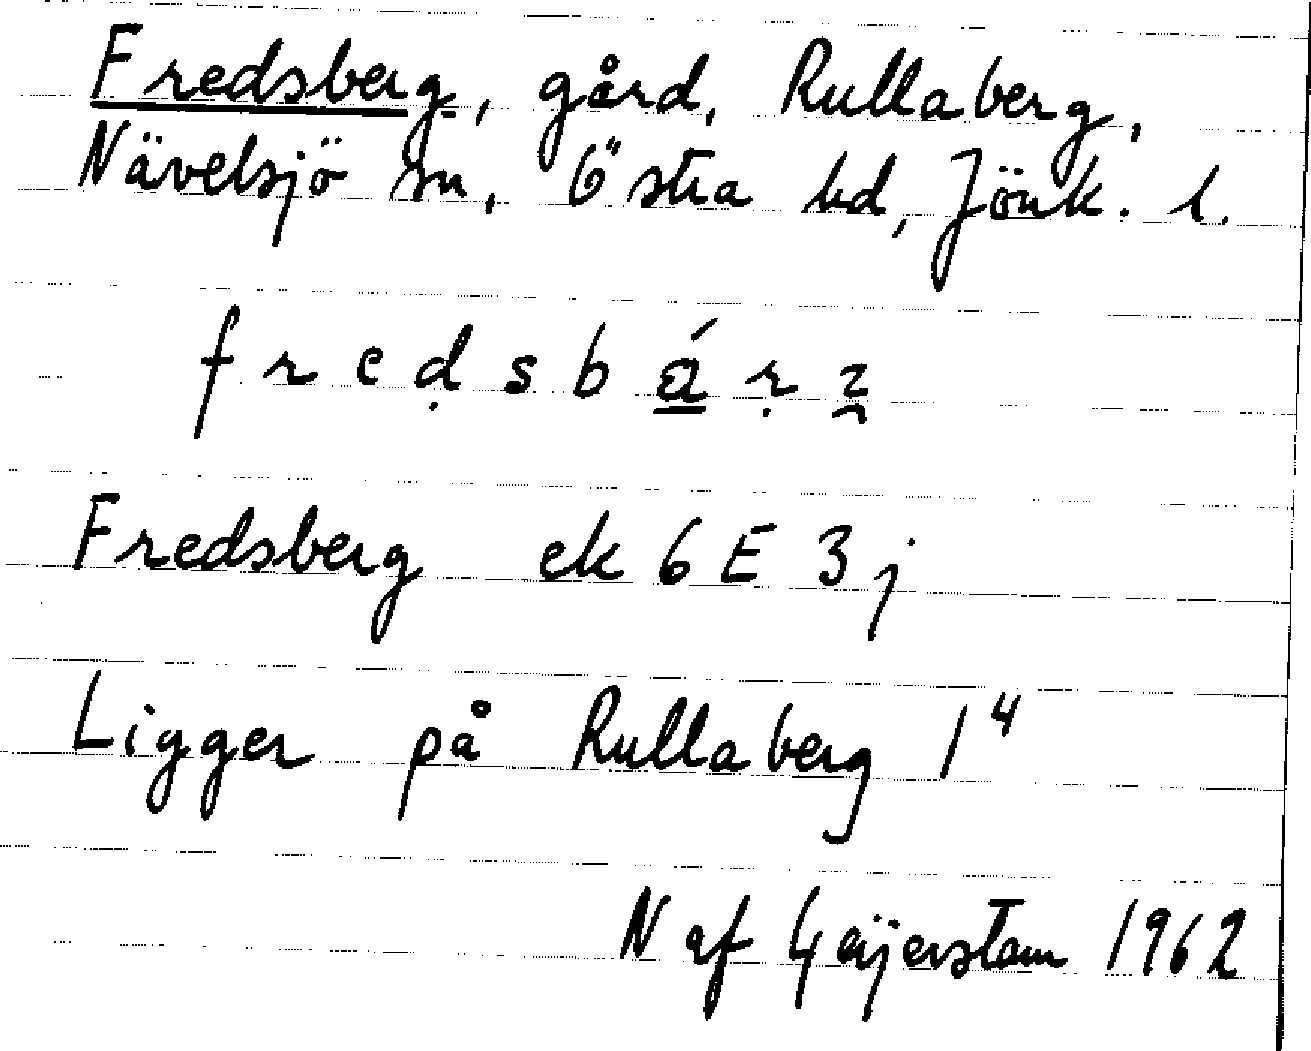 Fredsberg, gård, Rullaberg,
Nävelsjö sn, Östra hd, Jönk. l.
f r e ḍ s b á̱ ṛ z
Fredsberg ek 6 E 3 j
Ligger på Rullaberg 1⁴
N af Geijerstam 1962